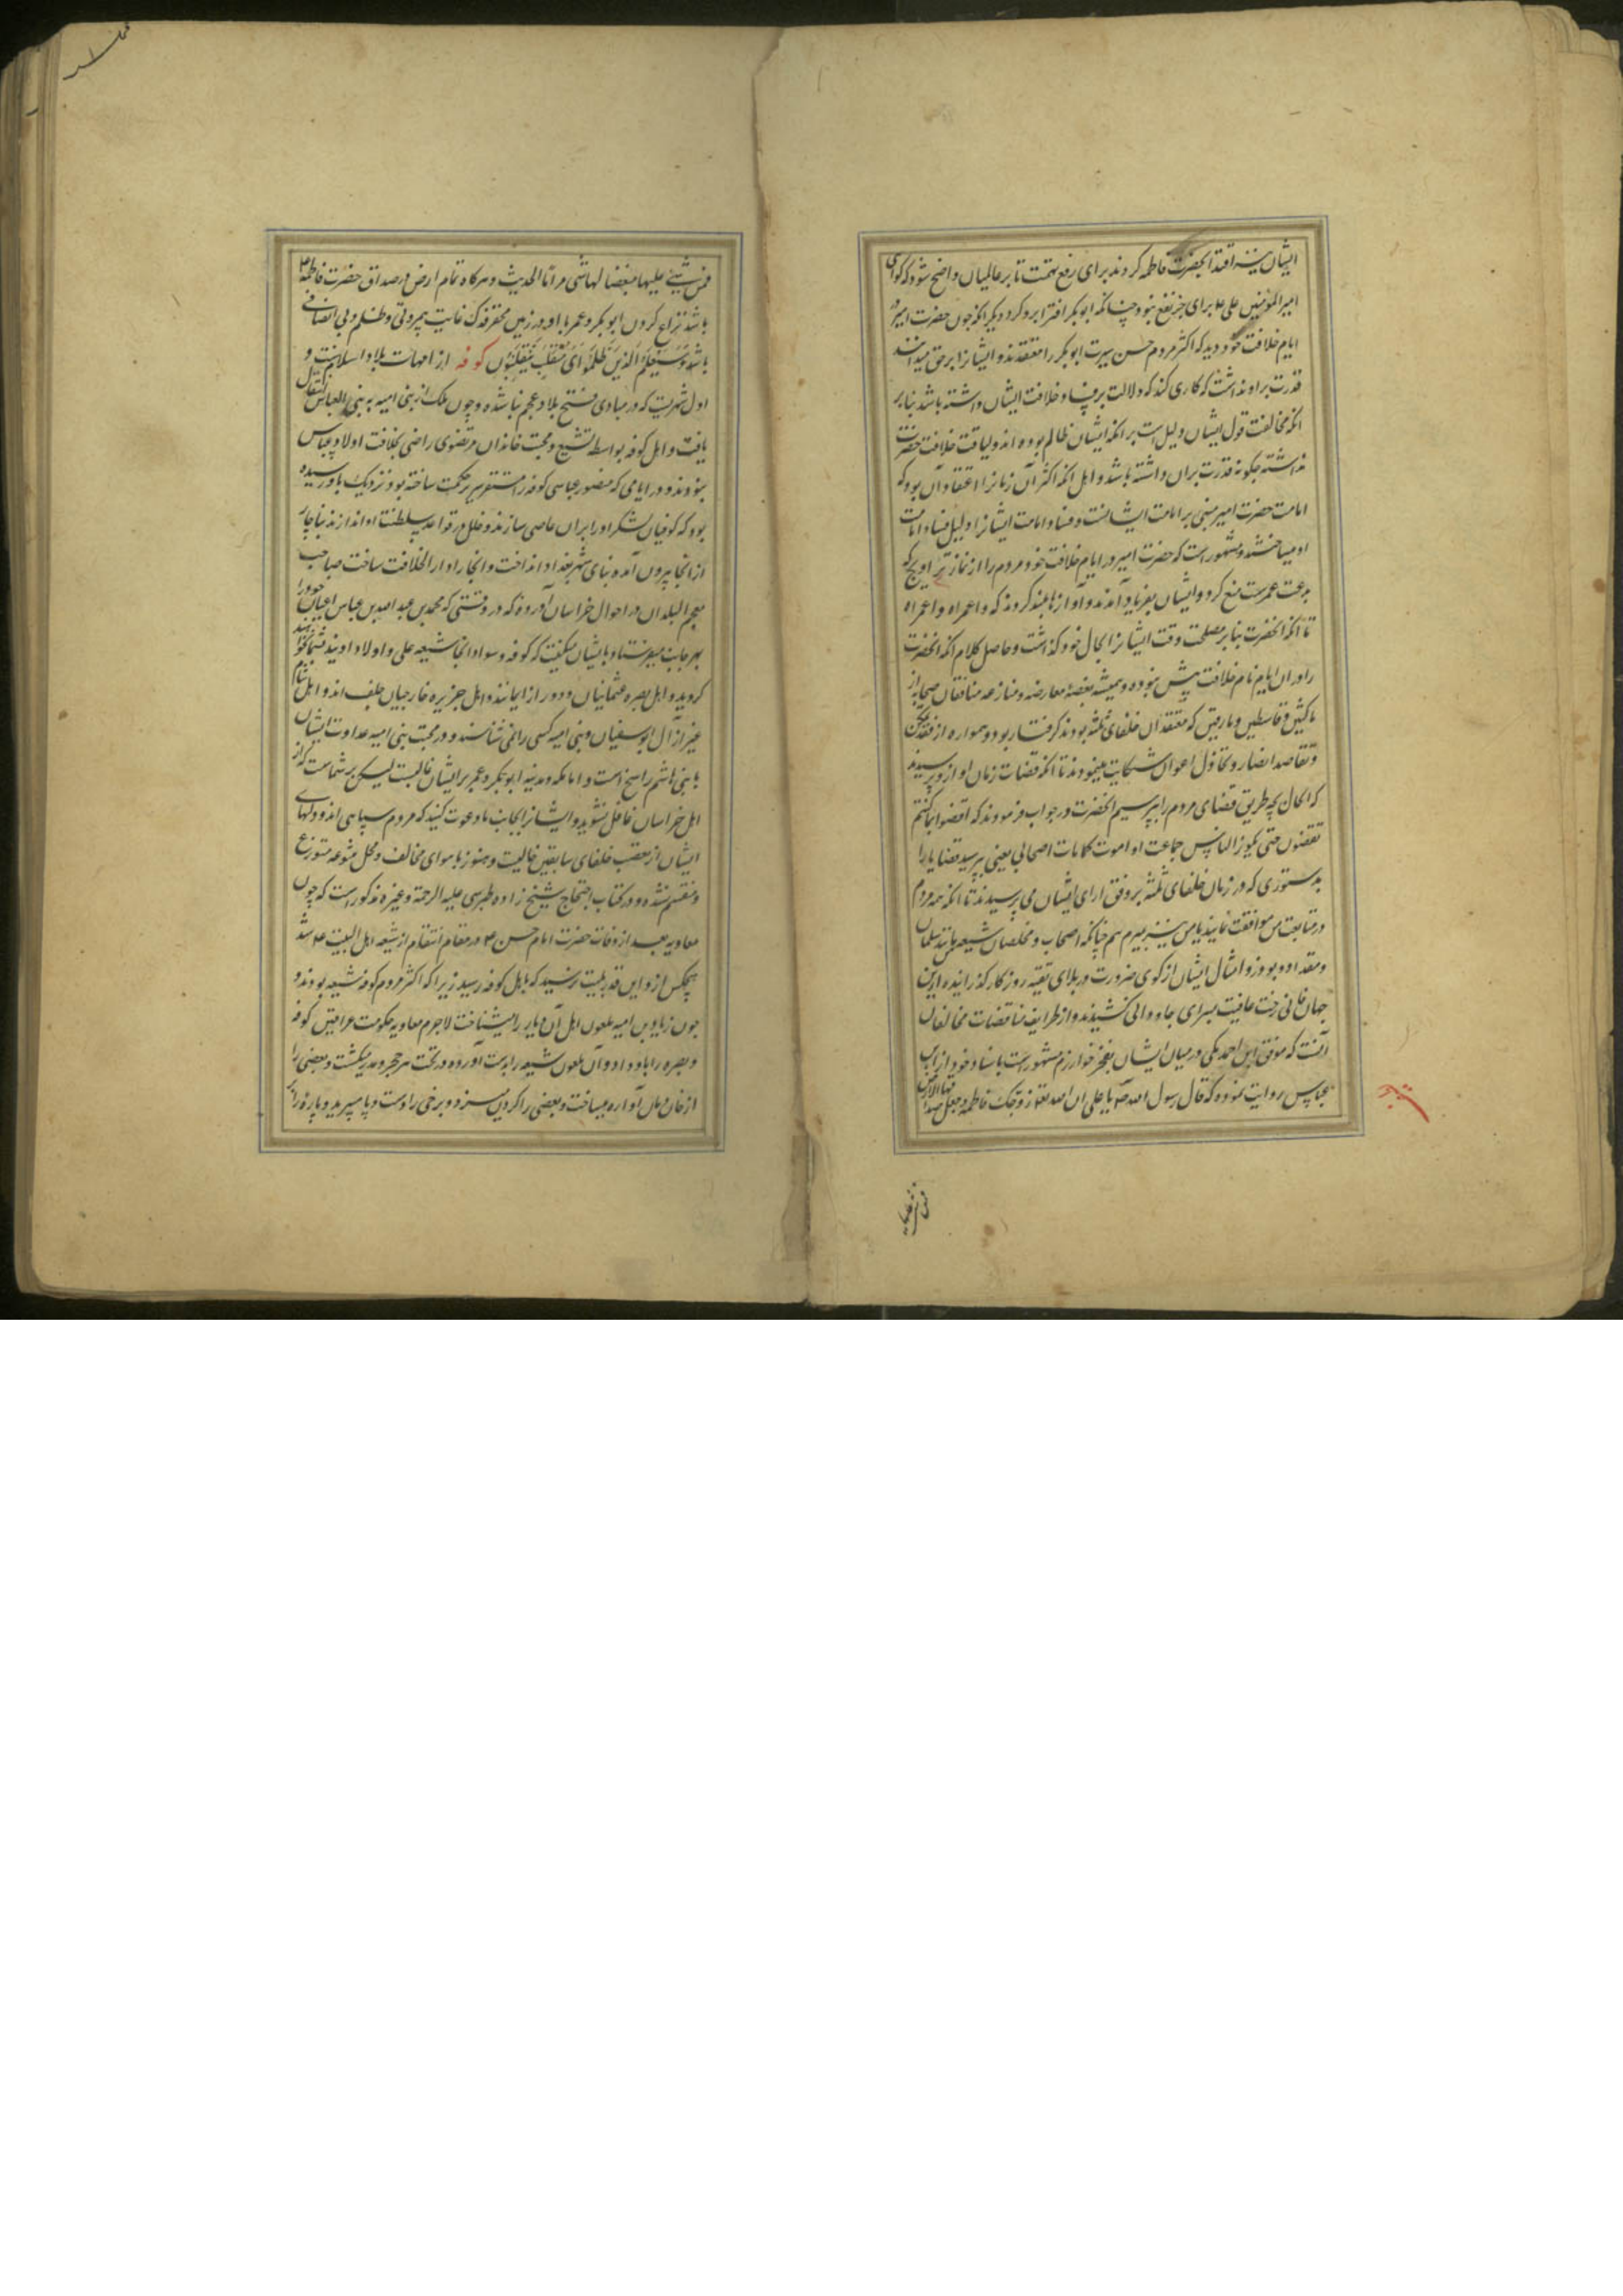 ایشان نیز اقتدا بحضرت فاطمه کردند برای رفع تهمت تا بر عالمیان واضح شود که گواهی
امیر المؤمنین علی ع برای جز نفع نبود چنانکه ابو بکر افترا برو کرد دیگر انکه چون حضرت امیر در
ایام خلافت خود دید که اکثر مردم حسن سیرت ابو بکر را معتقدند و ایشانرا بر حق میدانند
قدرت بر او نداشت که کاری کند که دلالت بر فساد خلافت ایشان داشته باشد بنابر
انکه مخالفت قول ایشان دلیل است بر انکه ایشان ظالم بوده اند و لیاقت خلافت حضرت
نداشته چگونه قدرت بران داشته باشد و اهل انکه اکثر آن زمانرا اعتقاد آن بود که
امامت حضرت امیر مبنی بر امامت ایشانست و فساد امامت ایشانرا دلیل فساد امامت
او میساختند و مشهور است که حضرت امیر در ایام خلافت خود مردم را از نماز تراویح که
بدعت عمرست منع کرد و ایشان بفریاد آمدند و آوازها بلند کردند که واعمراه واعمراه
تا انکه انحضرت بنابر مصلحت وقت ایشانرا بحال خود گذاشت و حاصل کلام انکه انحضرت
را دران ایام نام خلافت پیش نبوده و همیشه بغصه معارضه و منازعه منافقان صحابه از
ناکثین و قاسطین و مارقین که معتقدان خلفای ثلثه بودند گرفتار بود و همواره از فقد تمکن
و تقاعد انصار و تخاذل اعوان شکایت مینمودند تا انکه قضات زمان او ازو پرسیدند
که الحال بچه طریق قضای مردم را بپرسیم انحضرت در جواب فرمودند که اقضوا بما کنتم
تقضون حتی یکون الناس جماعت او اموت کما مات اصحابی یعنی بپرسید قضایا را
بدستوری که در زمان خلفای ثلثه بروفق ارای ایشان می پرسیدند تا انکه همه مردم
در متابعت من موافقت نمایند یا من نیز بمیرم هم چنانکه اصحاب و مخلصان شیعه من مانند سلمان
و مقداد و بوذر و امثال ایشان از کوی ضرورت در بلای تقیه روزکار گذرانیده ازین
جهان فانی رخت عافیت بسرای جاودانی کشیدند و از طرایف مناقضات مخالفان
آنست که موفق ابن احمد مکی در میان ایشان بفخر خوارزم مشهورست باسناد خود از ابن
عباس روایت نموده که قال رسول الله ص یا علی ان الله تعالی زوجک فاطمه و جعل صداقها الارض
فمن مشی علیها مبغضا لها مشی حراما الحدیث و هرکاه تمام ارض در صداق حضرت فاطمه ع
باشد نزاع کردن ابو بکر و عمر با او در زمین محقر فدک غایت بیمروتی و ظلم و بی انصافی
باشد وَسَیَعْلَمُ الَّذینَ ظَلَمُوا أَیَّ مُنْقَلَبٍ یَنْقَلِبُونَ کوفه از امهات بلاد اسلامست و
اول شهریست که در مبادی فتح بلاد عجم بنا شده و چون ملک از بنی امیه به بنی العباس انتقال
یافت و اهل کوفه بواسطه تشیع و محبت خاندان مرتضوی راضی بخلافت اولاد عباس
نبودند و در ایامی که منصور عباسی کوفه را مستقر سریر حکومت ساخته بود نزدیک باو رسیده
بود که کوفیان لشکر او را بران عاصی سازند و خلل در قواعد سلطنت او اندازند بناچار
از انجا بیرون آمده بنای شهر بغداد انداخت و انجا را دار الخلافت ساخت صاحب
معجم البلدان در احوال خراسان آورده که در وقتی که محمد بن عبد الله بن عباس اعیان خود را
بهر جانب میفرستاد با ایشان میگفت که کوفه و سواد انجا شیعه علی و اولاد اویند
کروید و اهل بصره عثمانیان و دور از ایمانند و اهل جزیره خارجیان جلف اند و اهل شام
غیر از آل ابو سفیان و بنی امیه کسی را نمی شناسند و در محبت بنی امیه عداوت ایشان
با بنی هاشم راسخ است و اما مکه و مدینه ابو بکر و عمر بر ایشان غالبست لیکن بر شماست که از
اهل خراسان غافل نشوید و ایشانرا بجانب ما دعوت کنید که مردم سپاهی اند و دلهای
ایشان از تعصب خلفای سابقین خالیست و هنوز باهوای مخالف و محل متنوعه متوزع
و منقسم نشده و در کتاب احتجاج شیخ زاده طبرسی علیه الرحمة و غیره مذکور است که چون
معاویه بعد از وفات حضرت امام حسن ع در مقام انتقام از شیعه اهل البیت ع شد
هیچکس ازو این قدر بلیت نرسید که باهل کوفه رسید زیرا که اکثر مردم کوفه شیعه بودند و
چون زیاد بن امیه ملعون اهل آن دیار را میشناخت لاجرم معاویه حکومت عراقین کوفه
و بصره را باو داد و آن ملعون شیعه را بدست آورده در تحت هر حجر و مدر میکشت و بعضی را
از خان و مان آواره میساخت و بعضی را گردن میزد و برخی را دست و پا میبرید و پاره را بر